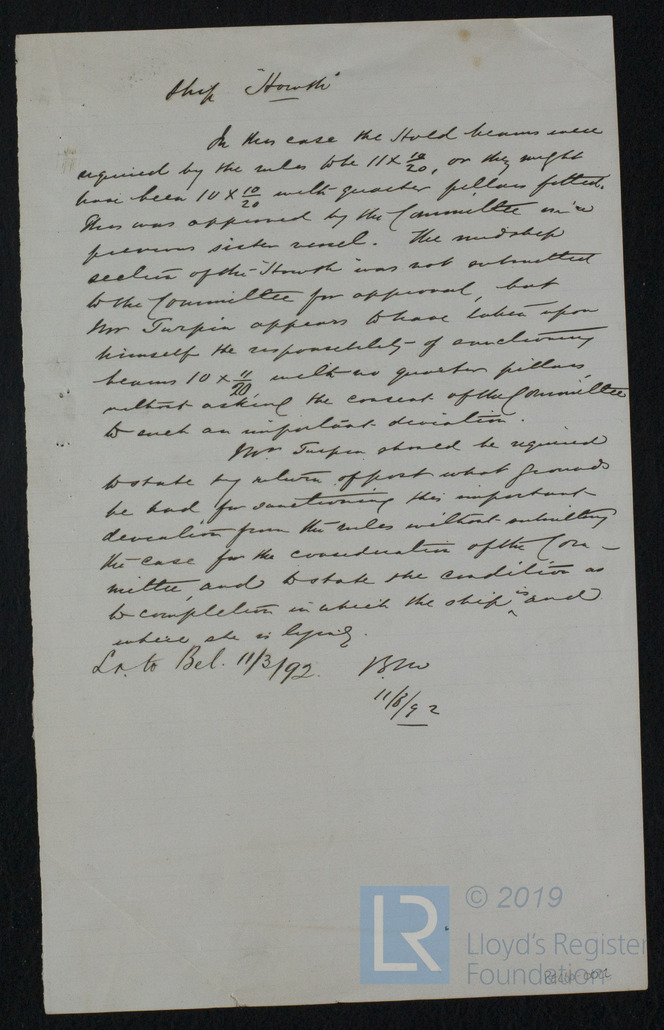 Ship "Howth"
In this case the Hold beams were
required by the rules to be 11 x 10/20, or they might
have been 10 x 10/20 with quarter pillars fitted.
This was approved by the Committee in a
previous sister vessel. The midship
section of the "Howth" was not submitted
to the Committee for approval, but
Mr Turpin appears to have taken upon
himself the responsibility of sanctioning
beams 10 x 11/20 with no quarter pillars,
without asking the consent of the Committee
to such an important deviation.
Mr Turpin should be required
to state by return of post what grounds
he had for sanctioning this important
deviation from the rules without submitting
the case for the consideration of the Com-
mittee, and to state the condition as
to completion in which the ship is and
where she is lying.
Lr. to Bel. 11/3/92.
11/3/92
© 2019
LR
Lloyd's Register
Foundation